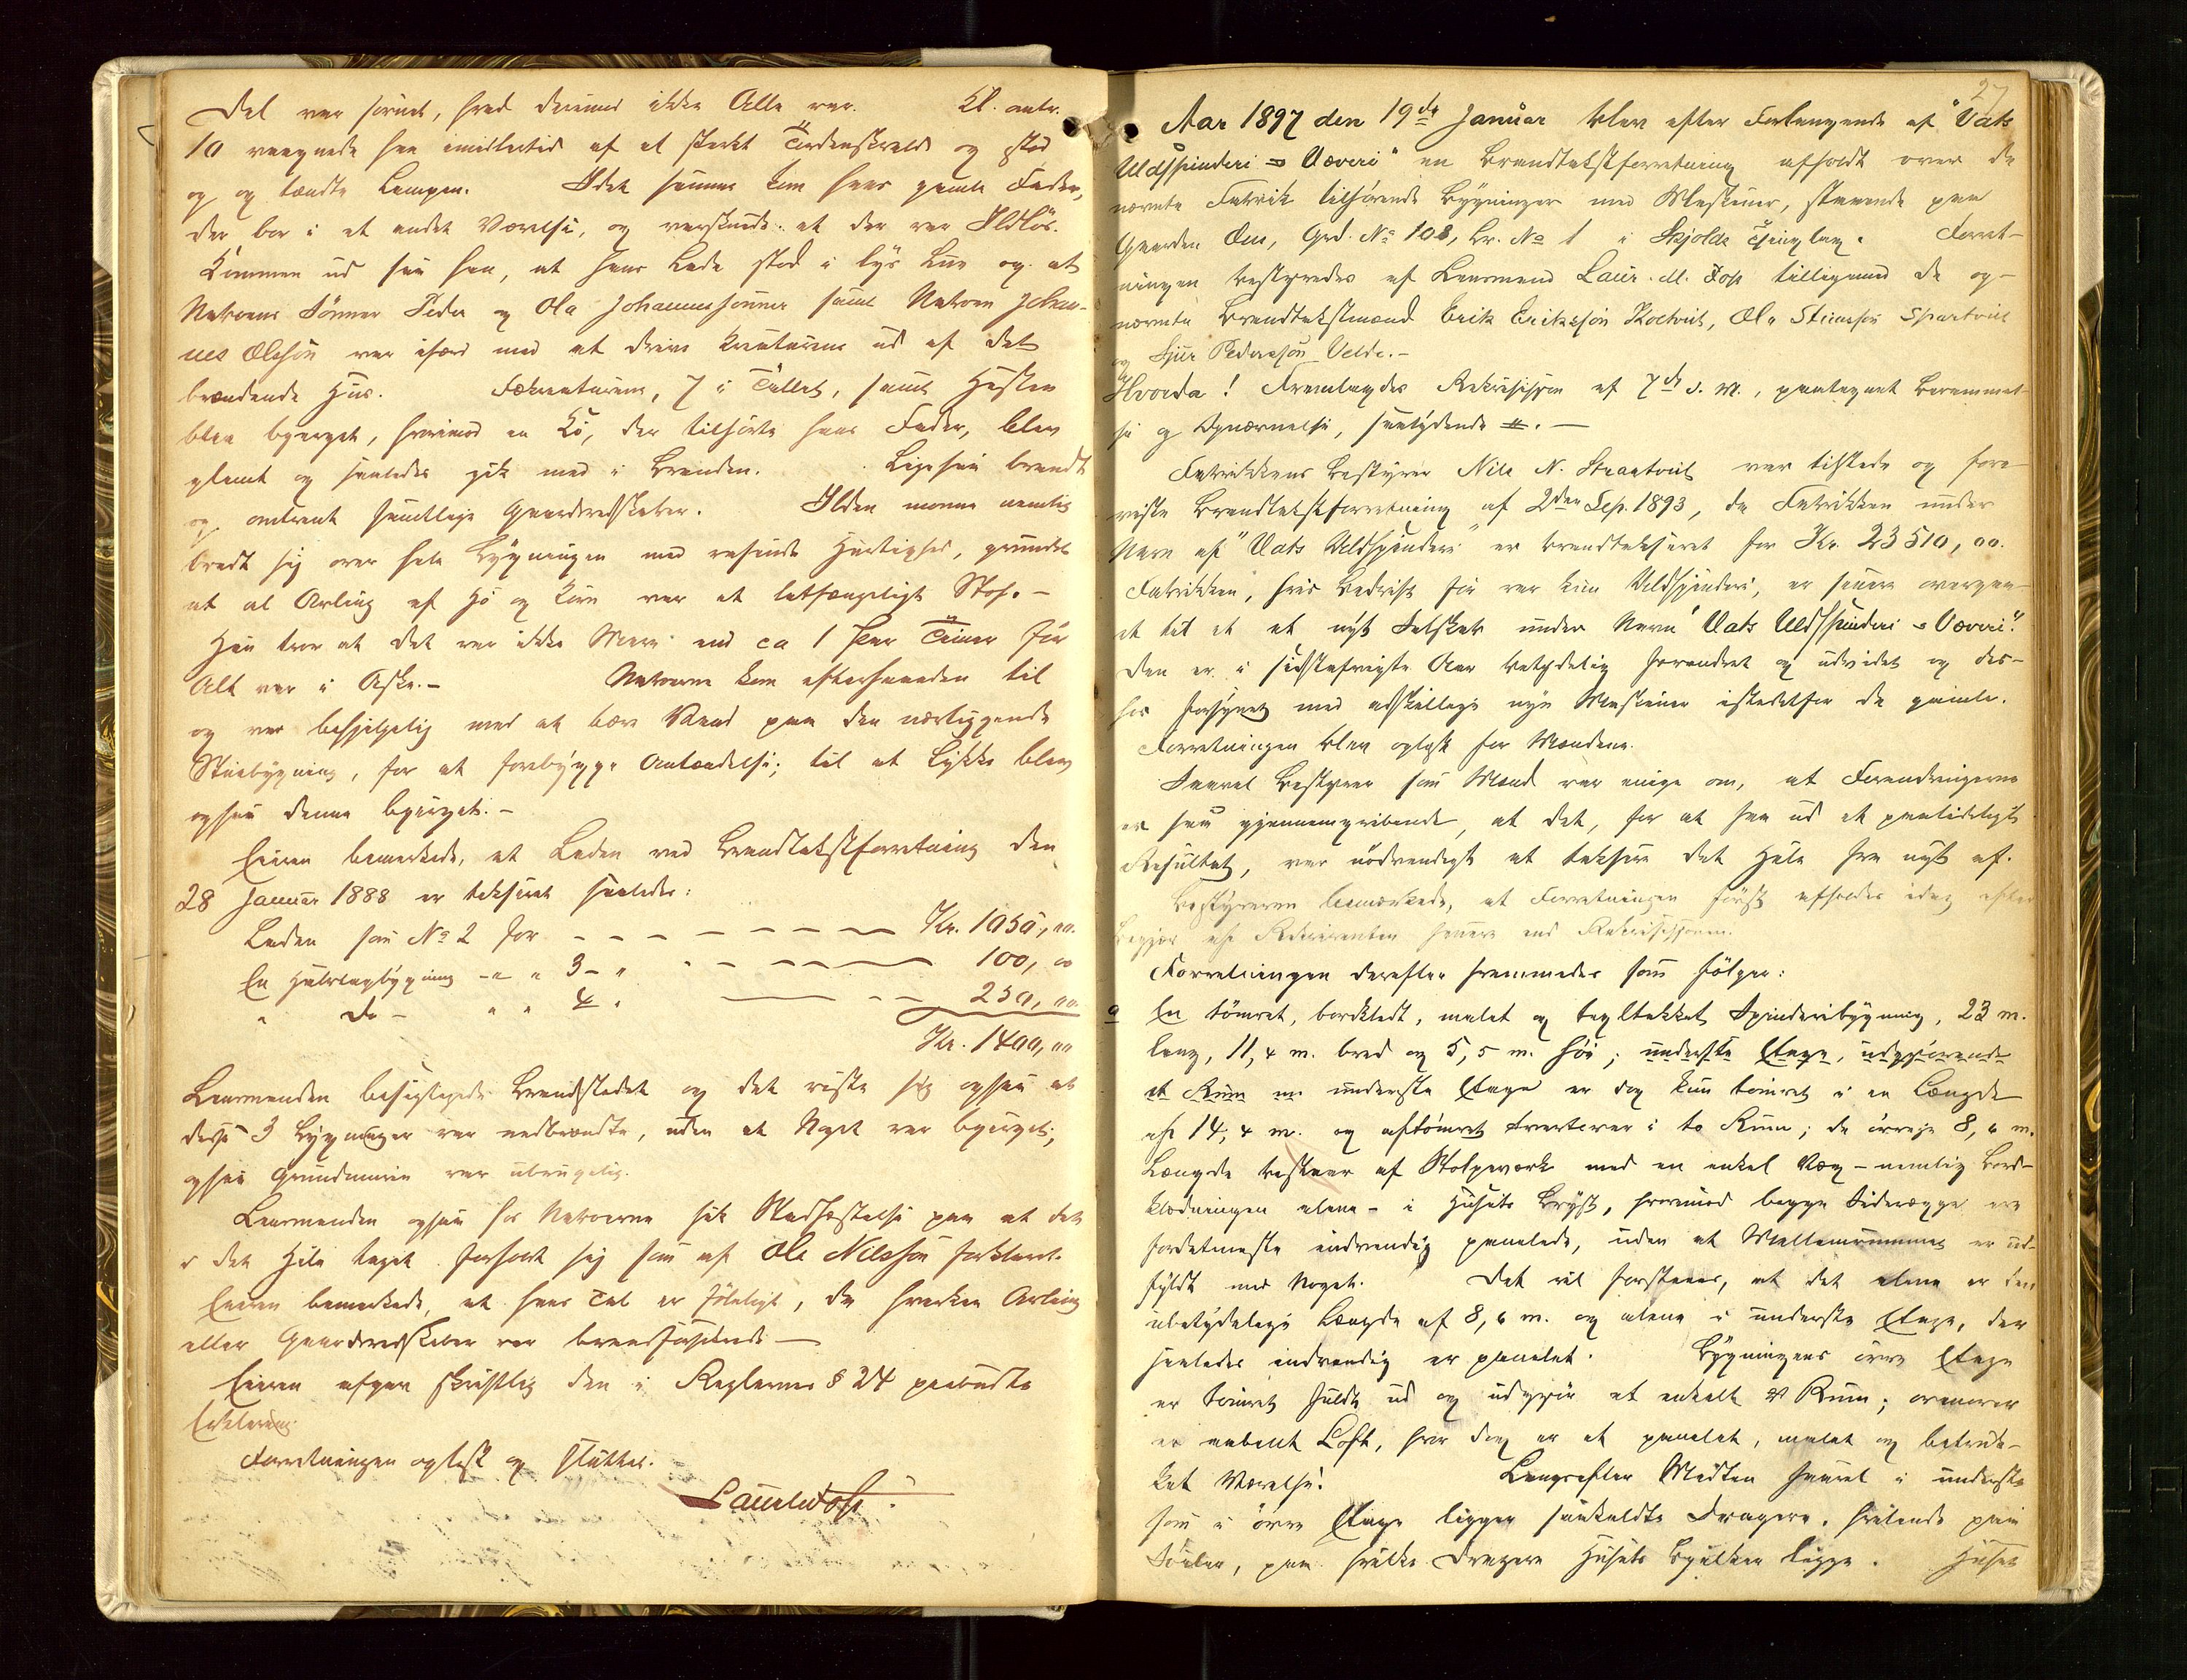 det var forvist, hvad derimod ikke Alle var. Kl. omtr.
10 vaagnede han imidlertid af et sterkt Tordenskrald og stod
op og tændte Lampen. I det samme kom hans gamle Fader,
der bor i et andet Værelse, og varskuede at der var Ildlös.
Kommen ud saa han, at hans Lade stod i lys Lue og at
Naboens Sönner Peder og Ola Johannessönner samt Naboen Johan-
nes Olssön var isfærd med at drive Kreaturene ud af det
brændende Hus. Fækreaturene, 7 i Tallet, samt Hesten
blev bjerget, hvorimod en Ko, der tilhörte hans Fader, blev
glemt og saaledes gik med i Branden. Ligesaa brændt
og omtrent samtlige Gaardsredskaber. Ilden monne nemlig
bredt sig over hele Bygningen med rasende Hurtighed, grundet
at al Avling af Hö og Korn var et letfængeligt Stof. –
Han tror at det var ikke Mere end ca 1 Par Timer för
Alt var i Aske. – Naboerne kom efterhaanden til
og var behjelpelig med at bære Vand paa den nærliggende
Stuebygning, for at forebygge Antændelse; til at Lykke blev
ogsaa denne bjerget. –
Eieren bemerkede, at Laden ved Brandtakstforretning den
28 Januar 1888 er takseret saaledes:
Laden som No 2 for – – – – – – – Kr. 1050,00.
En Halvlagbygning – " " 3 – " – – – – – 100,00
" Do – " " 4 " – – – 250,00
Kr. 1400,00
Lensmanden besigtigede Brandstedet og det viste sig ogsaa at
disse 3 Bygninger var nedbrændte, uden at Noget var bjerget;
ogsaa Grundmuren var ubrugelig.
Lensmanden ogsaa hos Naboerne fik Stadfæstelse paa at det
i det Hele taget forholdt sig som af Ole Nilssön forklaret.
Eieren bemerkede, at hans Tab er föleligt, da hverken Avling
eller Gaardsredskaber var brandforsikrede –
Eieren afgav skriftlig den i Reglernes § 24 paabudte
Erklæring.
Forretningen oplæst og sluttet.
Laur. M. Fosse.
27
Aar 1897 den 19de Januar blev efter Forlangende af "Vats
Uldspinderi & Væveri" en Brandtakstforretning afholdt over de
nævnte Fabrik tilhörende Bygninger med Maskiner, staaende paa
Gaarden Aus, Grd. No 108, Br. No 1 i Skjolds Thinglag. Forret-
ningen bestyredes af Lensmand Laur. M. Foss tilligemed de op-
nævnte Brandtakstmænd Erik Erikssön, Ole
og Sjur Pederssön Velde. –
Hvorda! Fremlagdes Rekvisition af 7de d. M., paategnet Berammel-
se og Opnævnelse, saalydende #. –
Fabrikkens Bestyrer Nils N. var tilstede og fore-
viste Brandtakstforretning af 2den Sep. 1893, da Fabrikken under
Navn af "Vats Uldspinderi" er brandtakseret for Kr. 23510,00.
Fabrikken, hvis Bedrift för var kun Uldspinderi, er senere overgaa-
et til et nyt Selskab under Navn "Vats Uldspinderi & Væveri".
Den er i sidstafvigte Aar betydelig forandret og udvidet og des-
for forsynet med adskillige nye Maskiner istedetfor de gamle.
Forretningen blev oplæst for Mændene.
Saavel Bestyrer som Mænd var enige om, at Forandringerne
er saa gjennemgribende, at det, for at faa ud et paalideligt
Resultat, var nödvendigt at taksere det Hele fra nyt af.
Bestyreren bemærkede, at Forretningen först afholdes idag efter
Begjær af Rekvirenten senere end Rekvisitionen.
Forretningen derefter fremmedes som fölger:
a En tömret, bordklædt, malet og tegltækket Spinderibygning, 23 m.
lang, 11,4 m. bred og 5,5 m. höi; underste Etage, udgjörende
et Rum m underste Etage er dog kun tömret i en Længde
af 14,4 m. og aftömret tvertover i to Rum; de övrige 8,6 m.
Længde bestaar af Stolpeværk med en enkel Væg – nemlig Bord-
klædningen alene – i Husets Bryst, hvorimod begge Sidevægge er
fordetmeste indvendig panelede, uden at Mellemrummet er ud-
fyldt med Noget. Det vil forstaaes, at det alene er den
ubetydelige Længde af 8,6 m. og alene i underste Etage, der
saaledes indvendig er panelet. Bygningens övre Etage
er tömret fuldt ud og udgjör et enkelt Rum; ovenover
er aabent Loft, hvor dog er et panelet, malet og betræk-
ket Værelse. Langsefter Midten saavel i underste
som i övre Etage ligger saakaldte Dragere, hvilende paa
Söiler, paa hvilke Dragere Husets Bjelker ligge. Huset